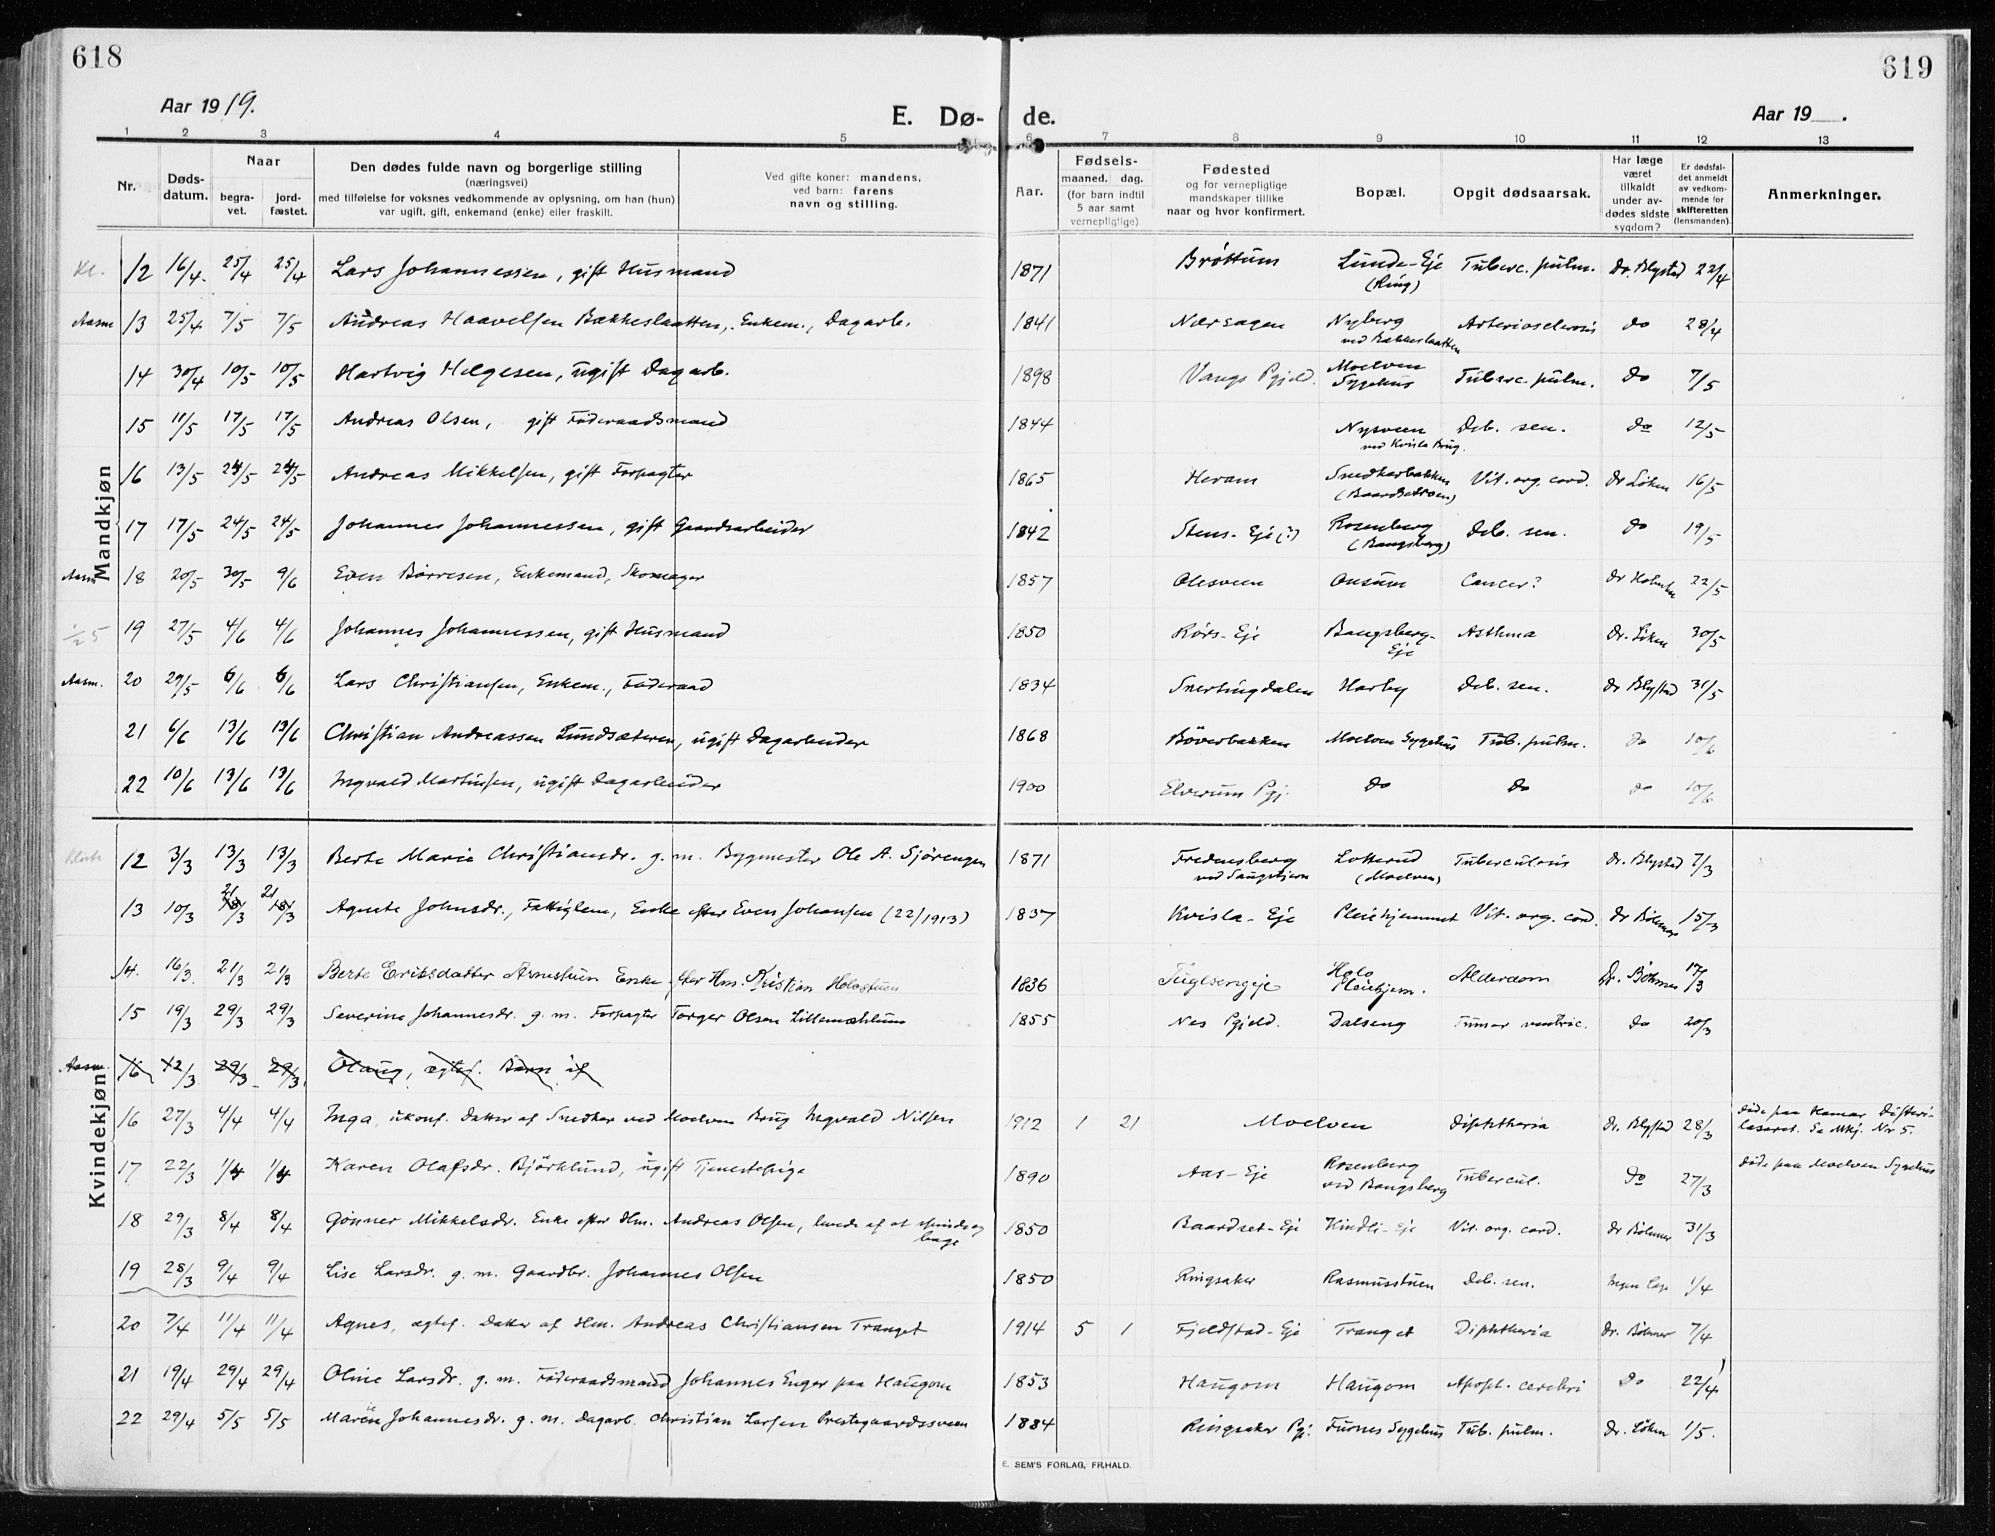 618
619
Aar 1919.
E. Dø- de.
Aar 19 .
1 2 3 4 5 6 7 8 9 10 11 12 13
Nr.
Døds-datum.
Naar
begra-vet.
jord-fæstet.
Den dødes fulde navn og borgerlige stilling
(næringsvei)
med tilføielse for voksnes vedkommende av oplysning, om han (hun)
var ugift, gift, enkemand (enke) eller fraskilt.
Ved gifte koner: mandens,
ved barn: farens
navn og stilling.
Aar.
Fødsels-
maaned. dag.
(for barn indtil
5 aar samt
vernepligtige)
Fødested
og for vernepligtige
mandskaper tillike
naar og hvor konfirmert.
Bopæl.
Opgit dødsaarsak.
Har læge
været
tilkaldt
under av-
dødes sidste
sygdom?
Er dødsfal-
det anmeldt
av vedkom-
mende for
skifteretten
(lensmanden).
Anmerkninger.
Mandkjøn
12 16/4. 25/4 25/4 Lars Johannessen, gift Husmand 1871 Brøttum Lunde-Eje (Ring) Tuberc. pulm. Dr. Blystad 22/4
Aasm 13 25/4 7/5 7/5 Andreas Haavelsen Bækkeslaatten, Enkem., Dagarb. 1841 Nyberg ved Bækkeslaatten Arteriosclerosis do 28/4
14 30/4 10/5 10/5 Hartvig Helgesen, ugift Dagarb. 1898 Vangs Pgjeld. Moelven Sygehus Tuberc. pulm. Do 7/5
15 11/5 17/5 17/5 Andreas Olsen, gift Føderaadsmand 1844 Nysveen ved Kvisla Brug. Deb. sen. do 12/5
16 13/5 24/5 24/5 Andreas Mikkelsen, gift Forpagter 1865 Heram Snedkerbakken (Baardsetroen) Vit. org. cord. Dr Løken 16/5
17 17/5 24/5 24/5 Johannes Johannessen, gift Gaardsarbeider 1842 Stens-Eje (?) Rosenberg (Bangsberg) Deb. sen. do 19/5
Aasm 18 20/5 30/5 9/6 Even Børresen, Enkemand, Skomager 1857 Olesveen Onsum Cancer? 22/5
19 27/5 4/6 4/6 Johannes Johannessen, gift Husmand 1850 Rørs-Eje Bangsberg-Eje Asthma Dr. Løken 30/5
Aasm. 20 29/5 6/6 6/6 Lars Christiansen, Enkem., Føderaad 1834 Snertingdalen Harby Deb. sen. Dr Blystad 31/5
21 6/6 13/6 13/6 Christian Andreassen Lundsæteren, ugift Dagarbeider 1868 Bøverbakken Moelven Sygehus Tub. pulm. do 10/6
22 10/6 13/6 13/6 Ingvald Martinsen, ugift Dagarbeider 1900 Elverum Pgj. do do do 10/6
Kvindekjøn
12 3/3 13/3 13/3 Berte Marie Christiansdr. g. m. Bygmester Ole A. Sjørengen 1871 Fredensberg Lotterud (Moelven) Tuberculosis Dr. Blystad 7/3
13 10/3 21/3 21/3 Agnete Johnsdr., Fattiglem, Enke efter Even Johansen (22/1913) 1837 Kvisla-Eje Pleiehjemmet Vit. org. cord. Dr Bøhmer 15/3
14. 16/3. 21/3 21/3 Berte Eriksdatter Arnestuen Enke efter Hm. Kristian Holostuen 1836 Holo Pleiehjem. Alderdom Dr. Bøhmer 17/3
15 19/3 29/3 29/3 Severine Johannesdr. g. m. Forpagter Torger Olsen Lillemæhlum 1855 Nes Pgjeld. Dalseng Tumor ventric. do 20/3
Aasm. 16 12/3 29/3 29/3 Olaug, ægtef. Barn af
16 27/3 4/4 4/4 Inga, ukonf. Datter af Snedker ved Moelven Brug Ingvald Nilsen 1912 1 21 Moelven Diphtheria Dr. Blystad 28/3 døde paa Hamar Difteri-lasaret. Se Mkj. Nr 5.
17 22/3 1/4 1/4 Karen Olafsdr. Bjørklund, ugift Tjenestepige 1890 Aas-Eje Rosenberg ved Bangsberg Tubercul. Do 27/3 døde paa Moelven Sygehus
18 29/3 8/4 8/4 Gønner Mikkelsdr. Enke efter Hm. Andreas Olsen, levede af at spinde og bage 1850 Baardset-Eje Kindli-Eje Vit. org. cord. Dr Bøhmer 31/3
19 28/3 9/4 9/4 Lise Larsdr. g. m. Gaardbr. Johannes Olsen 1850 Ringsaker Rasmusstuen Deb. sen. Ingen læge 1/4
20 7/4 11/4 11/4 Agnes, ægtef. Datter af Hm. Andreas Christiansen Tranget 1914 5 1 Fjeldstad-Eje Tranget Diphtheria Dr. Bøhmer 7/4
21 19/4 29/4 29/4 Oline Larsdr. g. m. Føderaadsmand Johannes Enger paa Haugom 1853 Haugom Haugom Apopl. cerebri Do 22/4
22 29/4 5/5 5/5 Maren Johannesdr. g. m. Dagarb. Christian Larsen Prestegaardssveen 1884 Ringsaker Pgj. Furnes Sygehus Tub. pulm. Dr. Løken 1/5.
E. SEM'S FORLAG, FR.HALD.